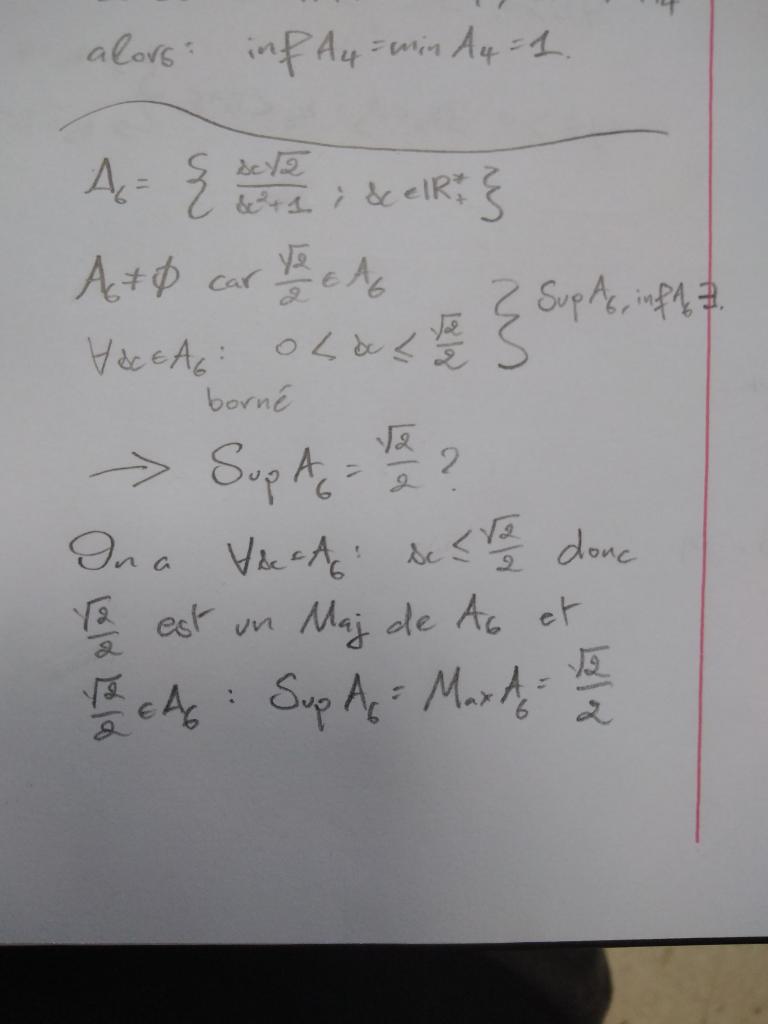 alors: inf A₄ = min A₄ = 1.
A₆ = { x√2 / x²+1 ; x ∈ IR*₊ }
A₆ ≠ ∅ car √2/2 ∈ A₆
∀x ∈ A₆ : 0 < x ≤ √2/2 } Sup A₆, inf A₆ ∃.
borné
→ Sup A₆ = √2/2 ?
On a ∀x ∈ A₆ : x ≤ √2/2 donc
√2/2 est un Maj de A₆ et
√2/2 ∈ A₆ : Sup A₆ = Max A₆ = √2/2